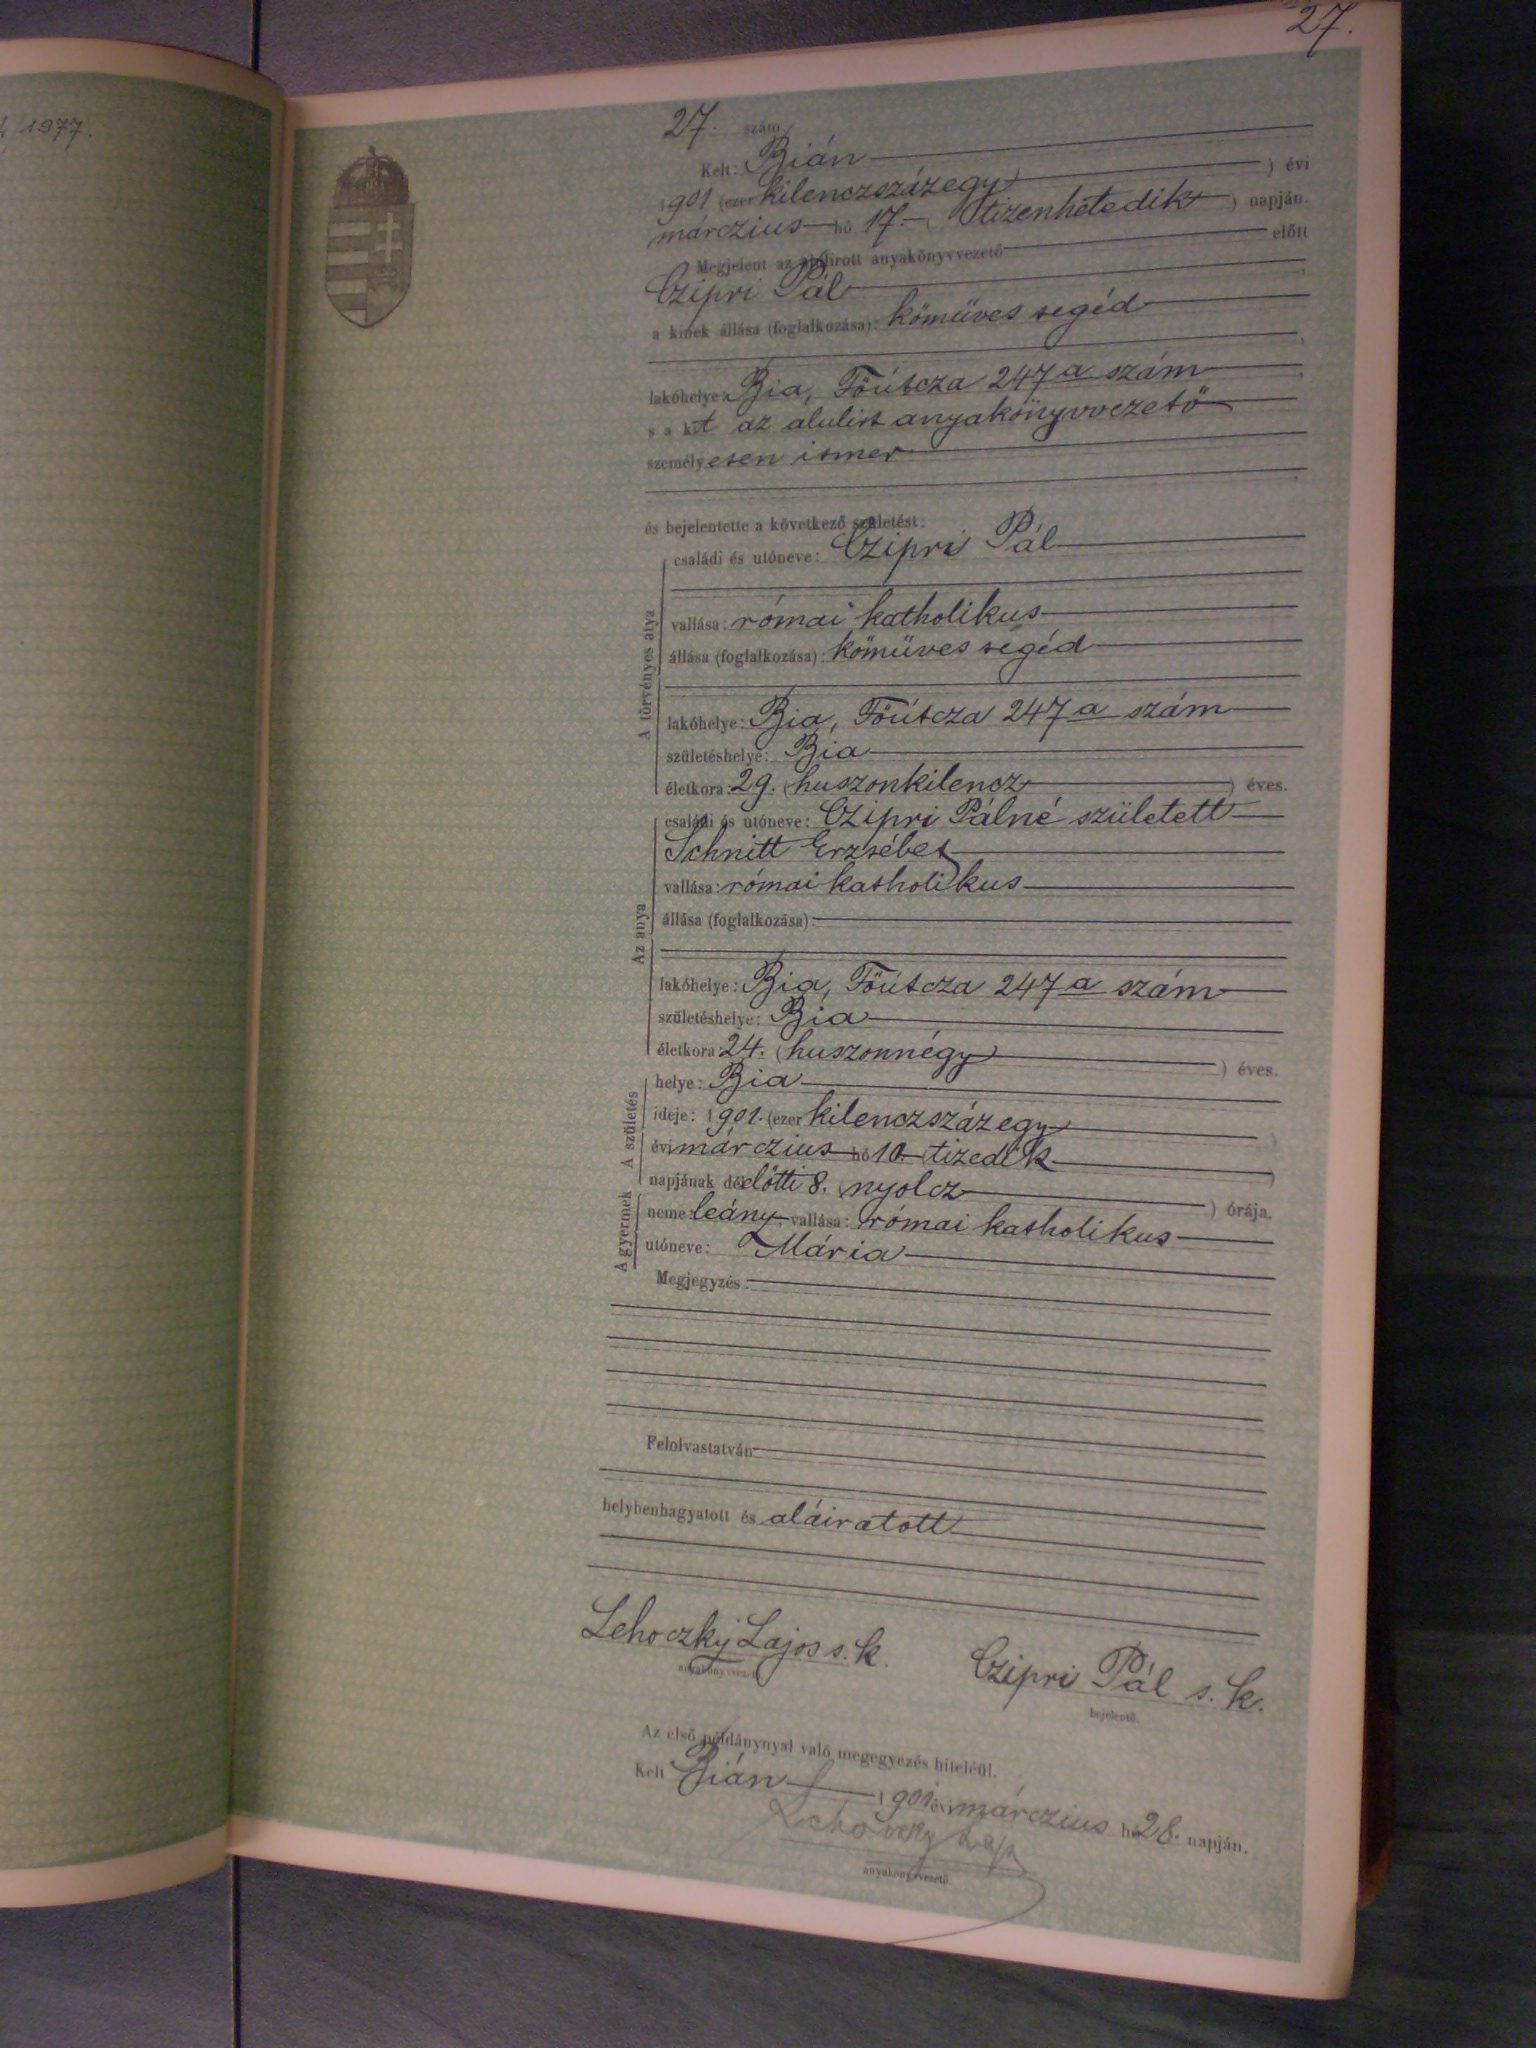 /1977.
27.
27. szám
Kelt: Bián
1901 (ezer kilenczszázegy) évi
márczius hó 17. (tizenhetedik) napján.
Megjelent az alulirott anyakönyvvezető előtt
Czipri Pál
a kinek állása (foglalkozása): kömüves segéd
lakóhelye: Bia, Föútcza 247 a szám
s a kit az alulirt anyakönyvvezető
személyesen ismer
és bejelentette a következő születést:
A törvényes atya
családi és utóneve: Czipri Pál
vallása: római katholikus
állása (foglalkozása): kömüves segéd
lakóhelye: Bia, Föútcza 247 a szám
születéshelye: Bia
életkora: 29. (huszonkilencz) éves.
Az anya
családi és utóneve: Czipri Pálné született
Schnitt Erzsébet
vallása: római katholikus
állása (foglalkozása):
lakóhelye: Bia, Föútcza 247 a szám
születéshelye: Bia
életkora: 24. (huszonnégy) éves.
A születés
helye: Bia
ideje: 1901. (ezer kilenczszázegy)
évi márczius hó 10. (tizedik)
napjának délelőtti 8. (nyolcz) órája.
A gyermek
neme: leány, vallása: római katholikus
utóneve: Mária
Megjegyzés:
Felolvastatván
helybenhagyatott és aláiratott
Lehoczky Lajos s. k.
anyakönyvvezető.
Czipri Pál s. k.
bejelentő.
Az első példánynyal való megegyezés hiteléül.
Kelt Bián 1901 évi márczius hó 28. napján.
Lehoczky Lajos
anyakönyvvezető.